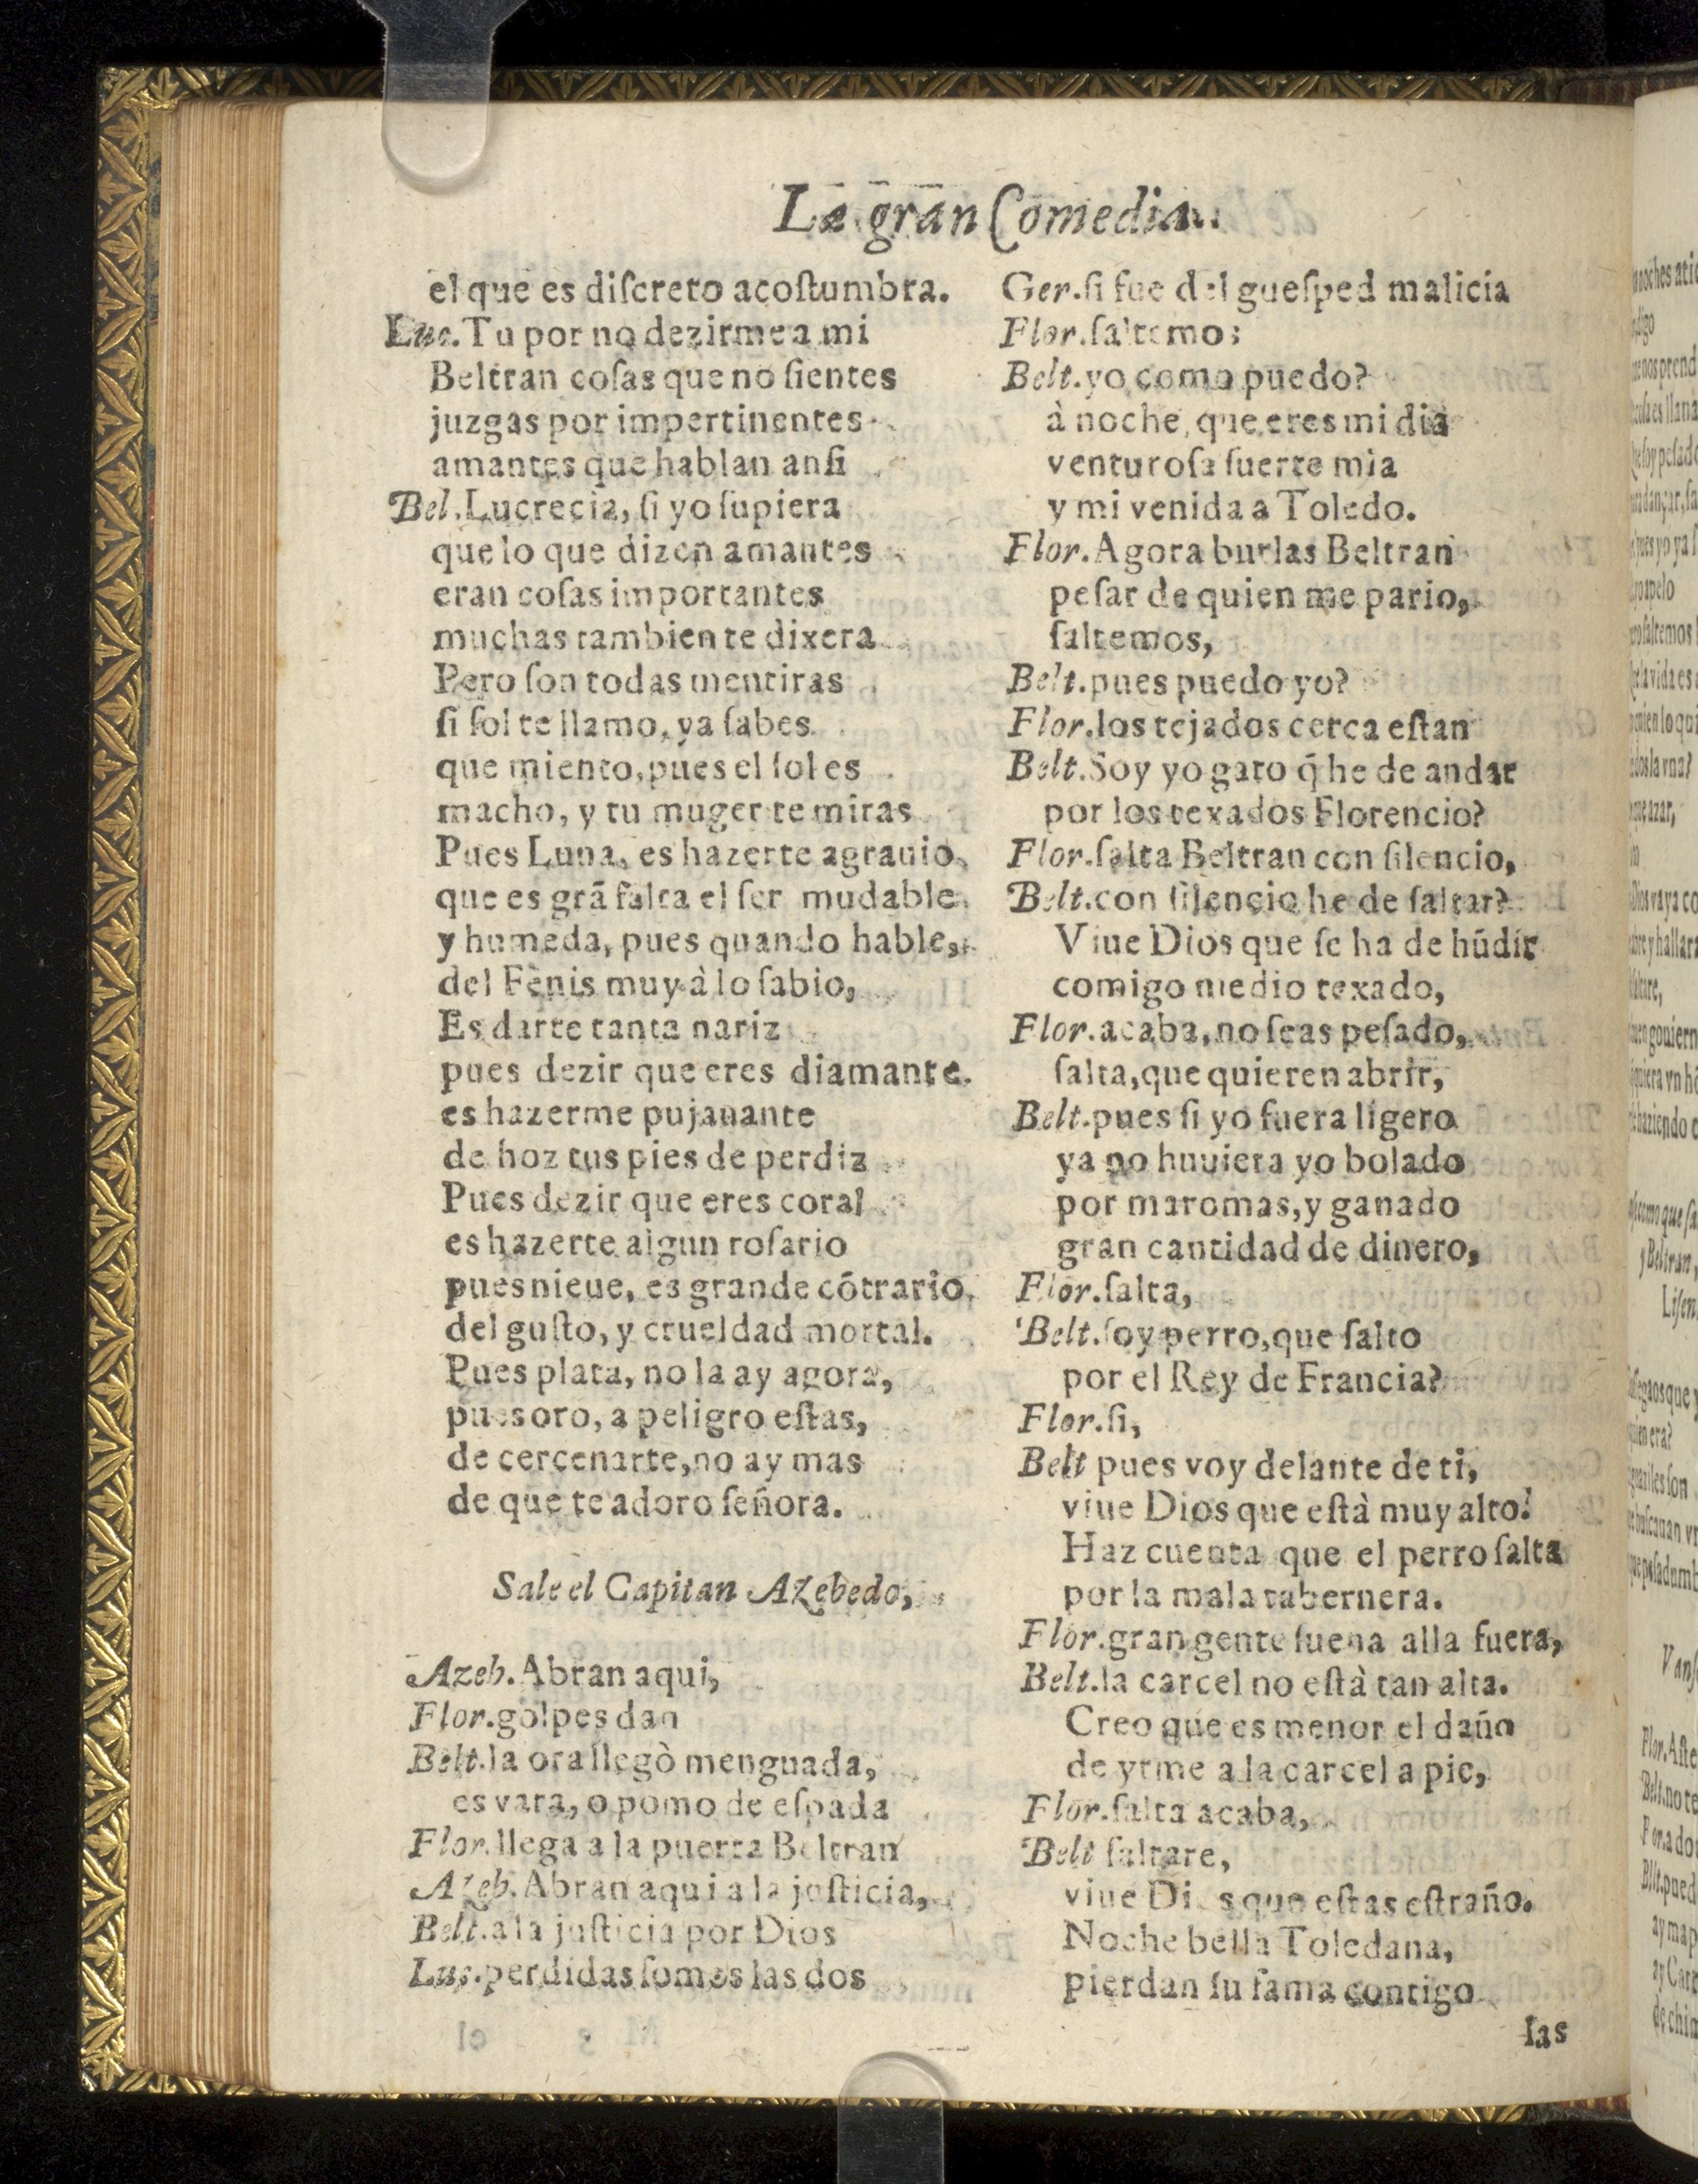 La gran Comedia.
el que es diſcreto acoſtumbra.
Luc. Tu por no dezirme a mi
Beltran coſas que no ſientes
juzgas por impertinentes
amantes que hablan anſi
Bel. Lucrecia, ſi yo ſupiera
que lo que dizen amantes
eran coſas importantes
muchas tambien te dixera
Pero ſon todas mentiras
ſi ſol te llamo, ya ſabes
que miento, pues el ſol es
macho, y tu muger te miras
Pues Luna, es hazerte agrauio,
que es grã falta el ſer mudable,
y humeda, pues quando hable,
del Fenis muy à lo ſabio,
Es darte tanta nariz
pues dezir que eres diamante.
es hazerme pujauante
de hoz tus pies de perdiz
Pues dezir que eres coral
es hazerte algun roſario
pues nieue, es grande cõtrario,
del guſto, y crueldad mortal.
Pues plata, no la ay agora,
pues oro, a peligro eſtas,
de cercenarte, no ay mas
de que te adoro ſeñora.
Sale el Capitan Azebedo,
Azeb. Abran aqui,
Flor. golpes dan
Belt. la ora llegò menguada,
es vara, o pomo de eſpada
Flor. llega a la puerta Beltran
Azeb. Abran aqui a la juſticia,
Belt. a la juſticia por Dios
Luc. perdidas ſomos las dos
Ger. ſi fue del gueſped malicia
Flor. ſaltemos
Belt. yo como puedo?
à noche, que eres mi dia
venturoſa ſuerte mia
y mi venida a Toledo.
Flor. Agora burlas Beltran
peſar de quien me pario,
ſaltemos,
Belt. pues puedo yo?
Flor. los tejados cerca eſtan
Belt. Soy yo gato q̃ he de andar
por los texados Florencio?
Flor. ſalta Beltran con ſilencio,
Belt. con ſilencio he de ſaltar?
Viue Dios que ſe ha de hũdir
comigo medio texado,
Flor. acaba, no ſeas peſado,
ſalta, que quieren abrir,
Belt. pues ſi yo fuera ligero
ya no huuiera yo bolado
por maromas, y ganado
gran cantidad de dinero,
Flor. ſalta,
Belt. ſoy perro, que ſalto
por el Rey de Francia?
Flor. ſi,
Belt pues voy delante de ti,
viue Dios que eſtà muy alto!
Haz cuenta que el perro ſalta
por la mala tabernera.
Flor. gran gente ſuena alla fuera,
Belt. la carcel no eſtà tan alta.
Creo que es menor el daño
de yrme a la carcel a pie,
Flor. ſalta acaba,
Belt ſaltare,
viue Dios que eſtas eſtraño.
Noche bella Toledana,
pierdan ſu fama contigo
las